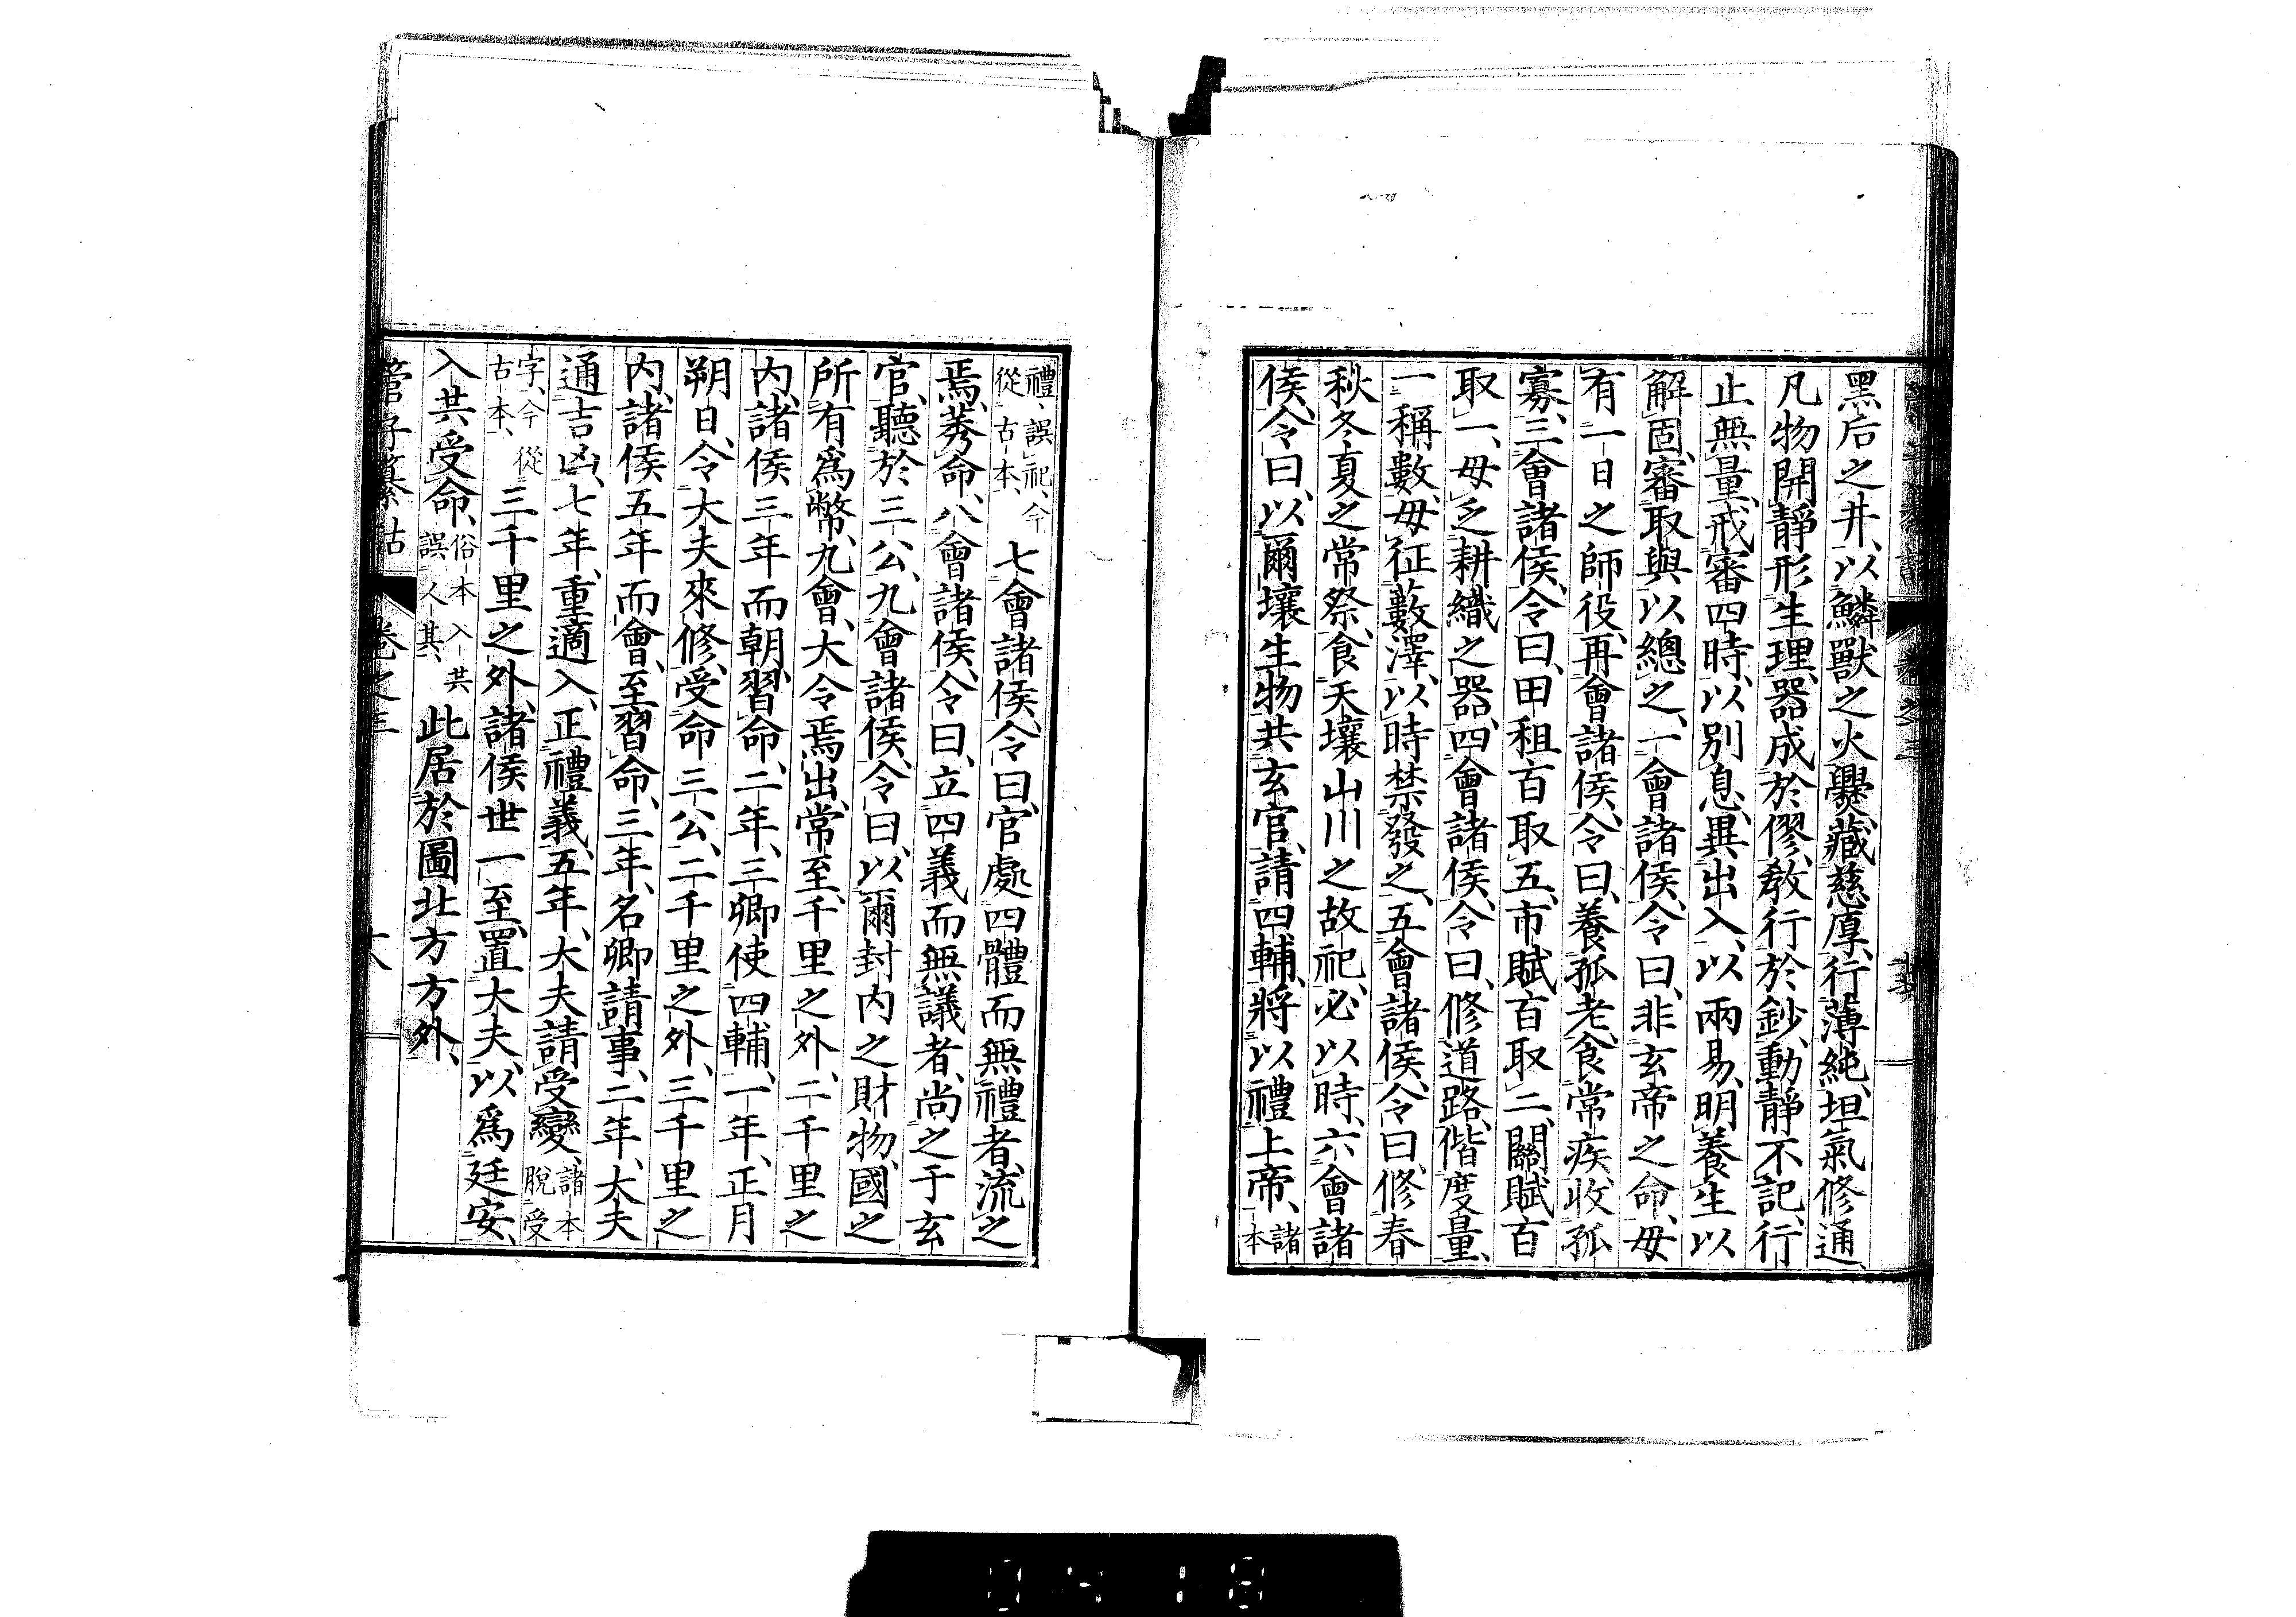 黑后之井、以鱗獸之火爨、藏慈厚、行薄純、坦氣修通、
凡物開靜形生理、器成於僇、教行於鈔、動靜不記、行
止無量、戒審四時、以別息、異出入、以兩易、明養生以
解固、審取與以總之、一會諸侯、令曰、非玄帝之命、毋
有一日之師役、再會諸侯、令曰、養孤老、食常疾、收孤
寡、三會諸侯、令曰、田租百取五、市賦百取二、關賦百
取一、毋乏耕織之器、四會諸侯、令曰、修道路、偕度量、
一稱數、毋征藪澤、以時禁發之、五會諸侯、令曰、修春
秋冬夏之常祭、食天壤山川之故祀、必以時、六會諸
侯、令曰、以爾壤生物共玄官、請四輔、將以禮上帝、諸本
禮、誤祀、今從古本、七會諸侯、令曰、官處四體而無禮者、流之
焉莠命、八會諸侯、令曰、立四義而無議者、尚之于玄
官、聽於三公、九會諸侯、令曰、以爾封內之財物、國之
所有爲幣、九會、大令焉出、常至、千里之外、二千里之
內、諸侯三年而朝、習命、二年、三卿使四輔、一年、正月
朔日、令大夫來修、受命三公、二千里之外、三千里之
內、諸侯五年而會、至習命、三年、名卿請事、二年、大夫
通吉凶、七年、重適入、正禮義、五年、大夫請受變、諸本脫受
字、今從古本、三千里之外、諸侯世一至、置大夫、以爲廷安、
入共受命、俗本入共誤人其、此居於圖北方方外、
管子纂詁 卷之三